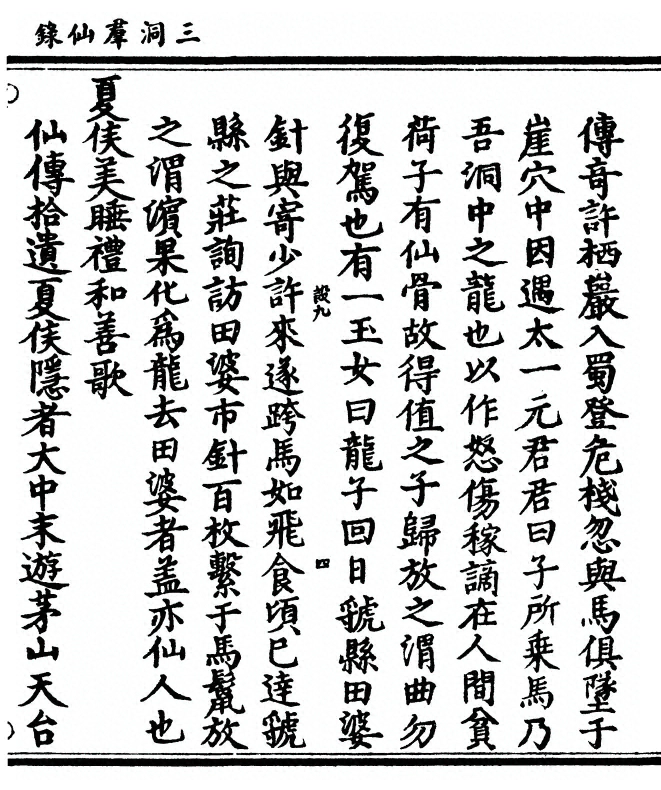 三洞羣仙錄
傳竒許栖巖入蜀登危棧忽與馬俱墜于
崖穴中因遇太一元君君曰子所乗馬乃
吾洞中之龍也以作怒傷稼謫在人間負
荷子有仙骨故得值之子歸放之渭曲勿
復駕也有一玉女曰龍子回日虢縣田婆
設九
四
針與寄少許來遂跨馬如飛食頃巳達虢
縣之莊詢訪田婆市針百枚繫于馬鬣放
之渭濱果化爲龍去田婆者盖亦仙人也
夏侯美睡禮和善歌
仙傳拾遺夏侯隱者大中末遊茅山天台